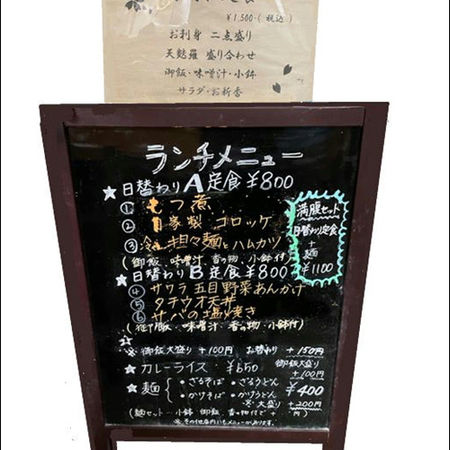 ¥1,500-(税込)
お刺身 二点盛り
天麩羅 盛り合わせ
御飯・味噌汁・小鉢
サラダ・お新香
ランチメニュー
★日替わりA定食¥800
① もつ煮
② 自家製 コロッケ
③ 冷坦々麺とハムカツ
(御飯、味噌汁、香の物、小鉢付)
★日替わりB定食¥800
④ サワラ 五目野菜あんかけ
⑤ タチウオ天丼
⑥ サバの塩焼き
味噌汁 香の物、小鉢付)
満腹セット
日替わり定食
+
麺
¥1100
※御飯大盛り +100円 お替わり +150円
★カレーライス ¥650 御飯大盛り +100円
★麺 ・ざるそば ・ざるうどん ¥400
・かけそば ・かけうどん
※大盛り +200円
(麺セット 小鉢 御飯 香の物付で+ 円)
メニューがあります。